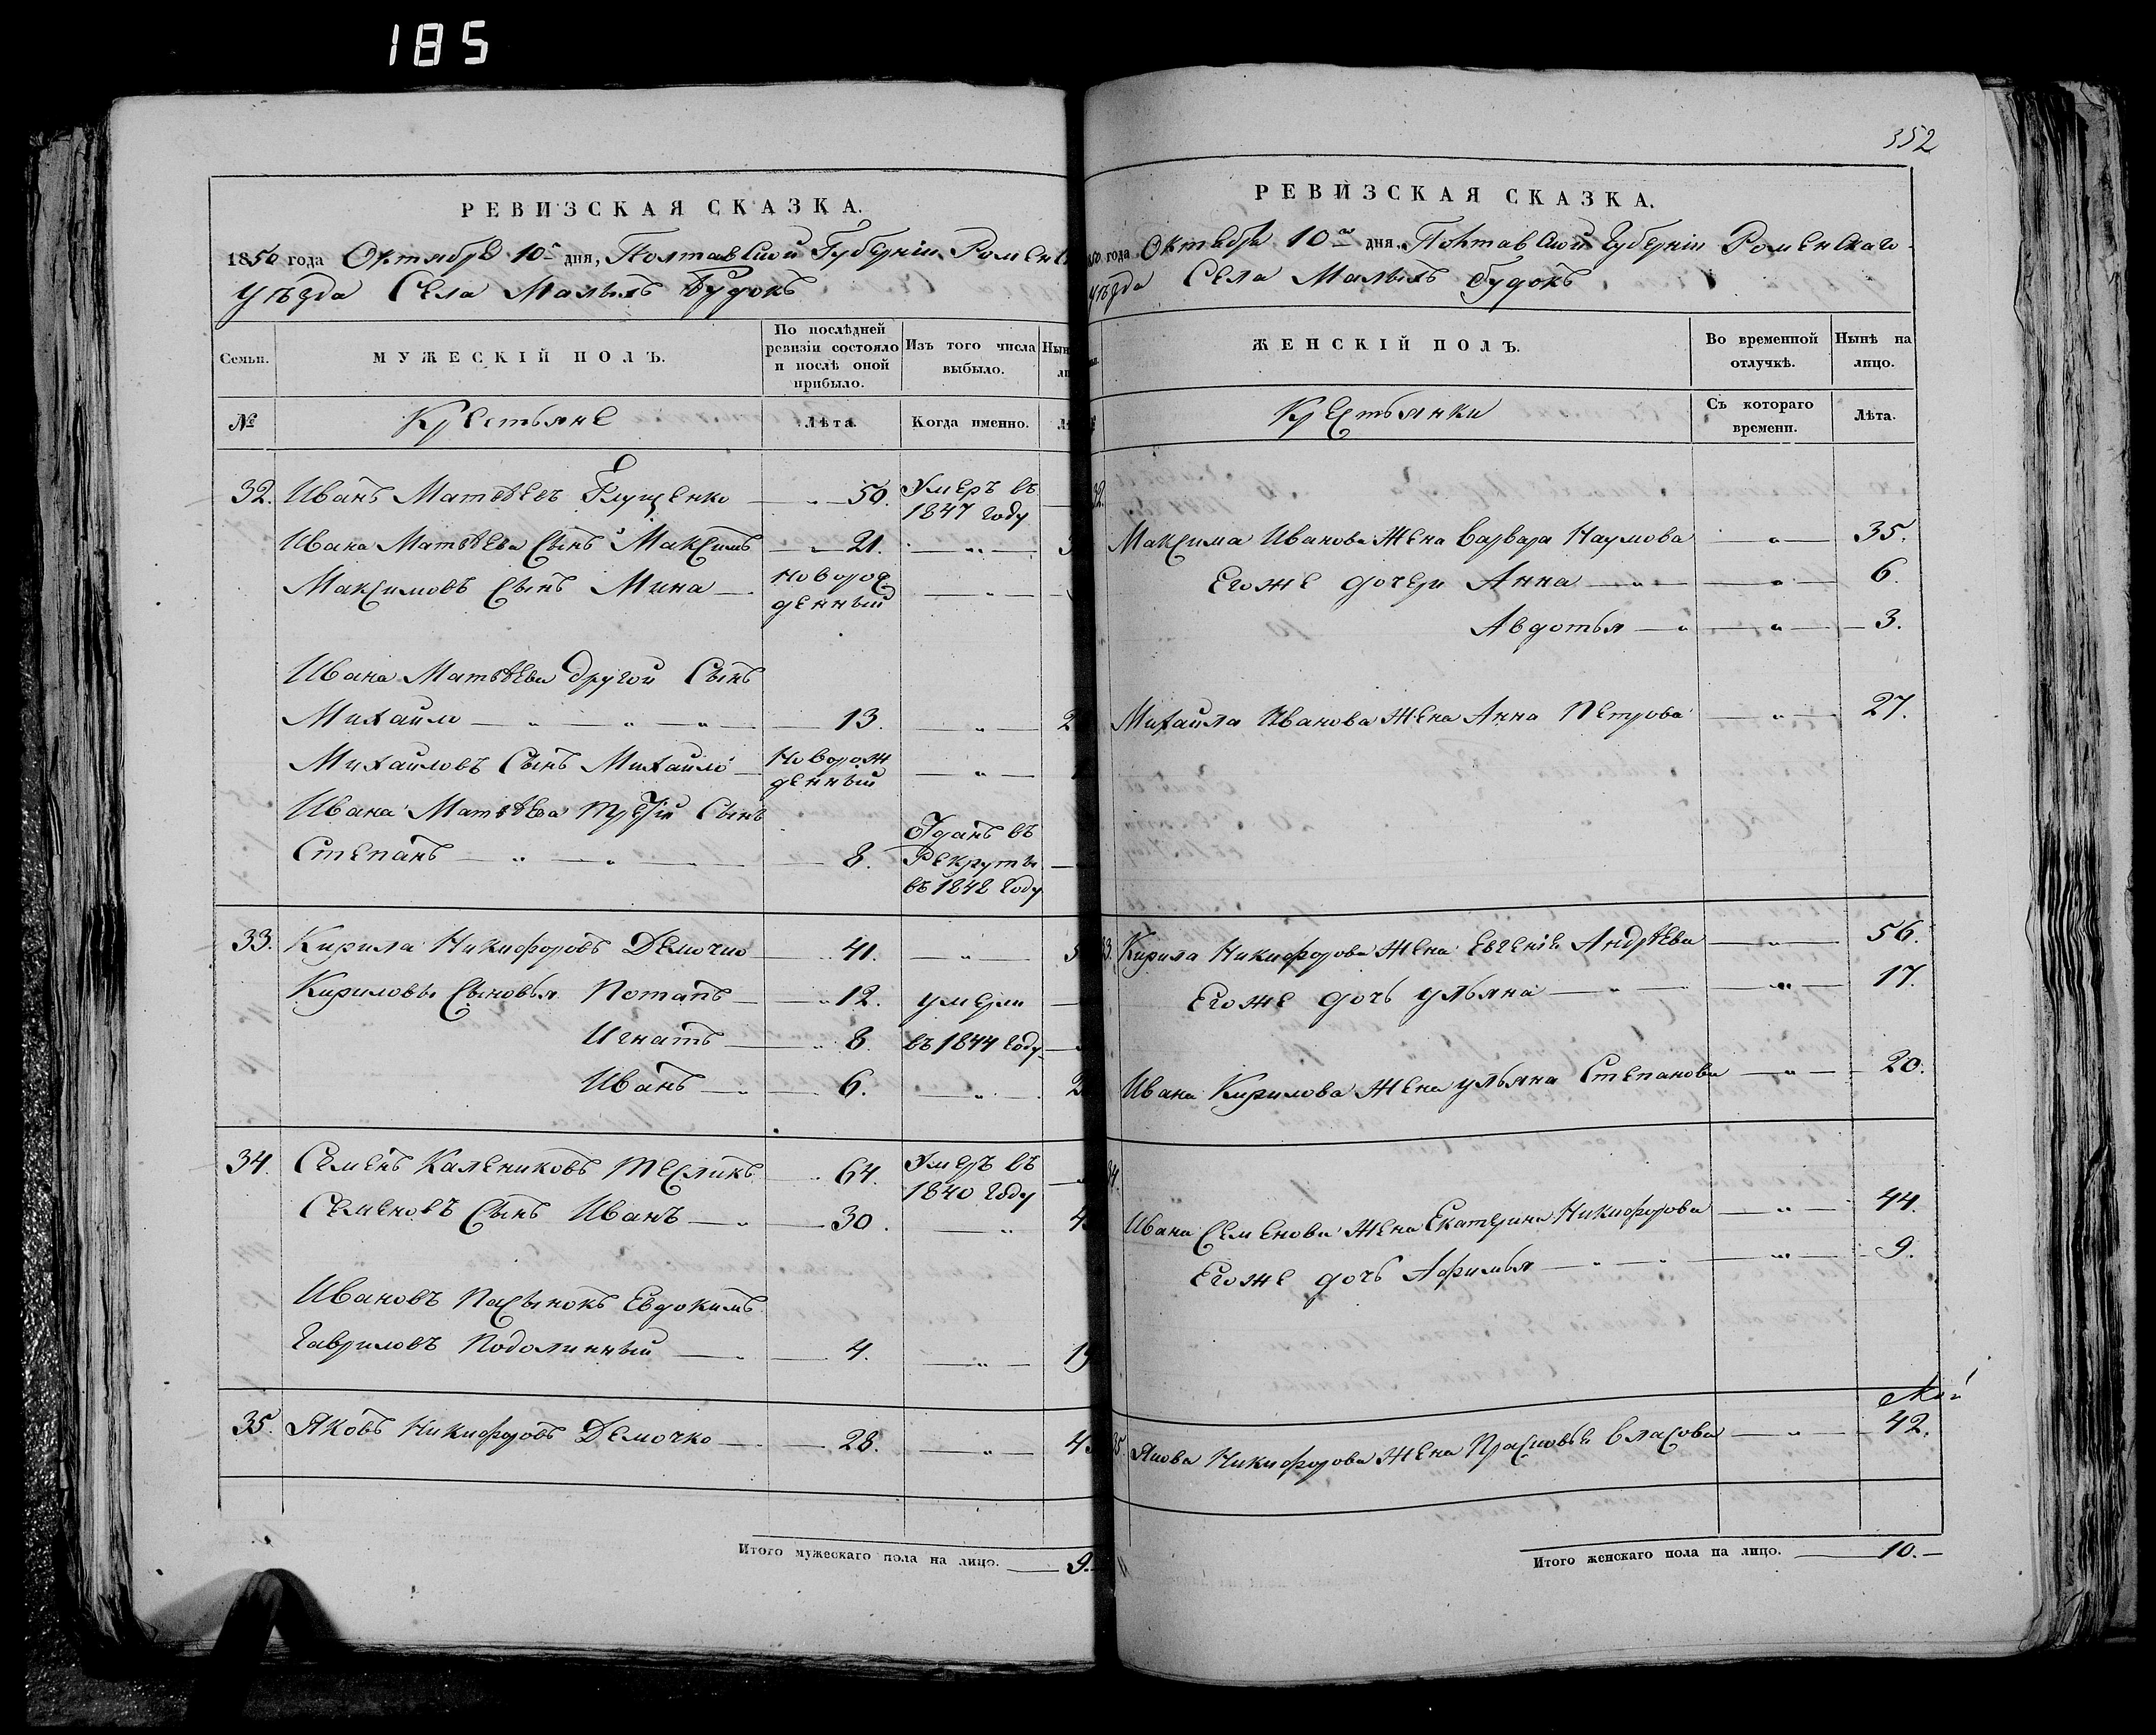 185
РЕВИЗСКАЯ СКАЗКА.
1850 года Октября 10 дня, Полтавской Губерніи Роменс
Уѣзда Села Малыхъ Будокъ
Семьи.
МУЖЕСКІЙ ПОЛЪ.
По послѣдней
ревизіи состояло
и послѣ оной
прибыло.
Изъ того числа
выбыло.
№
Крестьяне
Лѣта.
Когда именно.
32. Иванъ Матвѣевъ Глущенко 50. Умеръ въ
1847 году
Ивана Матвѣева Сынъ Максимъ 21.
Максимовъ Сынъ Мина Новорож
денный
Ивана Матвѣева другой Сынъ
Михайло 13. 2
Михайловъ Сынъ Михайло Новорож
денный
Ивана Матвѣева третій Сынъ
Степанъ 8. Отданъ въ
Рекруты
въ 1848 году
33. Кирила Никифоровъ Демочко 41.
Кириловы Сыновья Потапъ 12. умерли
Игнатъ 8. въ 1844 году
Иванъ 6. 2
34. Семенъ Калениковъ Тесликъ 64. Умеръ въ
1840 году
Семеновъ Сынъ Иванъ 30. 4
Ивановъ Пасынокъ Евдокимъ
Гавриловъ Подолинный 4. 19
35. Яковъ Никифоровъ Демочко 28. 4
Итого мужескаго пола на лицо. 9.
352
РЕВИЗСКАЯ СКАЗКА.
1850 года Октября 10 дня, Полтавской Губерніи Роменскаго
Уѣзда Села Малыхъ Будокъ
ЖЕНСКІЙ ПОЛЪ.
Во временной
отлучкѣ.
Нынѣ на
лицо.
Крестьянки
Съ котораго
времени.
Лѣта.
32.
Максима Иванова Жена Варвара Наумова 35.
Егоже дочери Анна 6.
Авдотья 3.
Михайла Иванова Жена Анна Петрова 27.
33. Кирила Никифорова Жена Евгенія Андрѣева 56.
Егоже дочь Ульяна 17.
Ивана Кирилова Жена Ульяна Степанова 20.
34.
Ивана Семенова Жена Екатерина Никифорова 44.
Егоже дочь Афимья 9.
35. Якова Никифорова Жена Прасковья Власова 42.
Итого женскаго пола на лицо. 10.